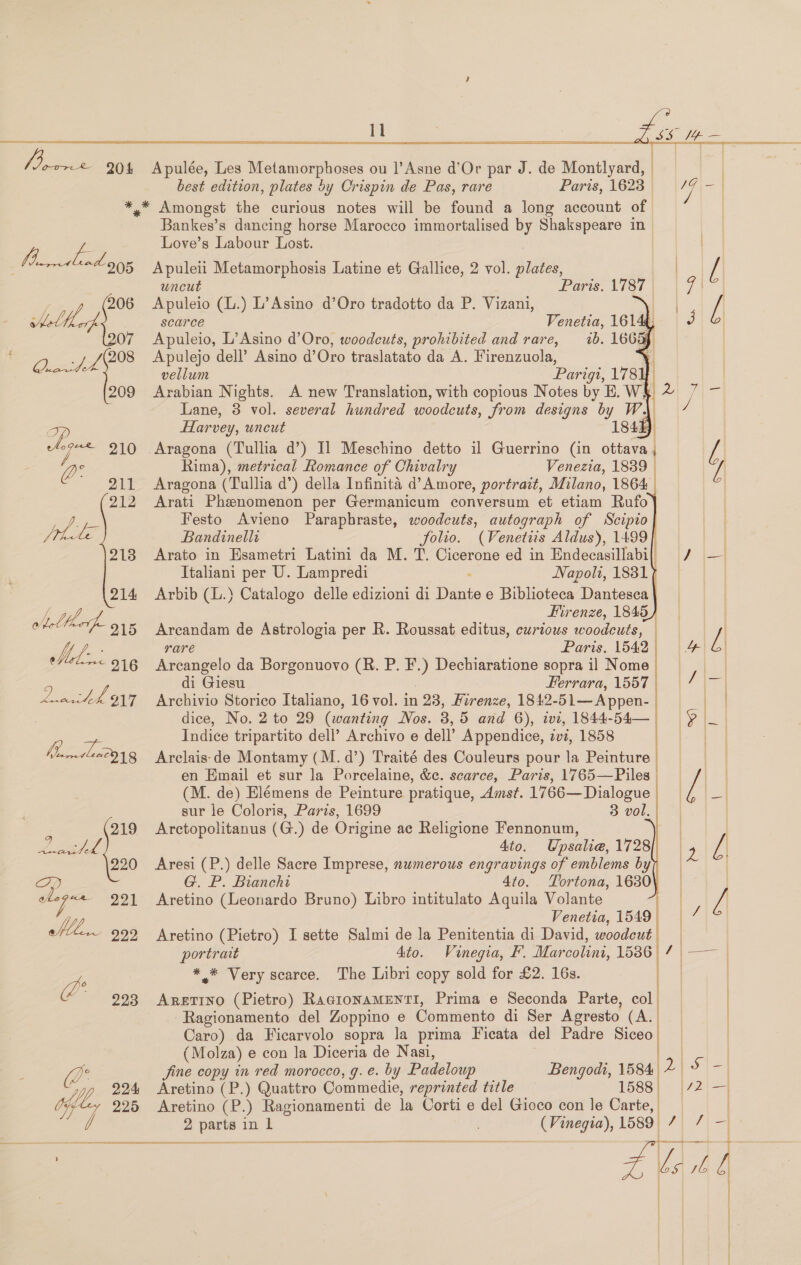 11
£ 55 14 -
Boone 204 Apulée, Les Metamorphoses ou l'Asne d'Or par J. de Montlyard,
best edition, plates by Crispin de Pas, rare Paris, 1623 19 -
*** Amongst the curious notes will be found a long account of
Bankes's dancing horse Marocco immortalised by Shakspeare in
Love's Labour Lost.
205 Apuleii Metamorphosis Latine et Gallice, 2 vol. plates,
uncut Paris. 1787 9 6
206 Apuleio (L.) L'Asino d'Oro tradotto da P. Vizani,
scarce Venetia, 1614 3 6
207 Apuleio, L'Asino d'Oro, woodcuts, prohibited and rare, ib. 1665
208 Apulejo dell' Asino d'Oro traslatato da A. Firenzuola,
vellum Parigi, 1781
209 Arabian Nights. A new Translation, with copious Notes by E. W. 2 7 -
Lane, 3 vol. several hundred woodcuts, from designs by W.
Harvey, uncut 1841
210 Aragona (Tullia d') Il Meschino detto il Guerrino (in ottava
Rima), metrical Romance of Chivalry Venezia, 1839
Do 211 Aragona (Tullia d') della Infinità d'Amore, portrait, Milano, 1864
212 Arati Phænomenon per Germanicum conversum et etiam Rufo
Festo Avieno Paraphraste, woodcuts, autograph of Scipio
Bandinelli folio. (Venetiis Aldus), 1499
213 Arato in Esametri Latini da M. T. Cicerone ed in Endecasillabi 1 -
Italiani per U. Lampredi Napoli, 1831
214 Arbib (L.) Catalogo delle edizioni di Dante e Biblioteca Dantesca
Firenze, 1845
215 Arcandam de Astrologia per R. Roussat editus, curious woodcuts,
rare Paris. 1542 4 6
216 Arcangelo da Borgonuovo (R. P. F.) Dechiaratione sopra il Nome
di Giesu Ferrara, 1557 1 -
217 Archivio Storico Italiano, 16 vol. in 23, Firenze, 1842-51—Appen-
dice, No. 2 to 29 (wanting Nos. 3, 5 and 6), ivi, 1844-54—
Indice tripartito dell' Archivo e dell' Appendice, ivi, 1858
218 Arclais de Montamy (M. d') Traité des Couleurs pour la Peinture
en Email et sur la Porcelaine, &c. scarce, Paris, 1765—Piles
(M. de) Elémens de Peinture pratique, Amst. 1766—Dialogue
sur le Coloris, Paris, 1699 3 vol. 6 -
219 Arctopolitanus (G.) de Origine ac Religione Fennonum,
4to. Upsaliæ, 1728 2 6
220 Aresi (P.) delle Sacre Imprese, numerous engravings of emblems by
G. P. Bianchi 4to. Tortona, 1630
221 Aretino (Leonardo Bruno) Libro intitulato Aquila Volante
Venetia, 1549 1 6
222 Aretino (Pietro) I sette Salmi de la Penitentia di David, woodcut
portrait 4to. Vinegia, F. Marcolini, 1536 1 —
*** Very scarce. The Libri copy sold for £2. 16s.
Do 223 ARETINO (Pietro) RAGIONAMENTI, Prima e Seconda Parte, col
Ragionamento del Zoppino e Commento di Ser Agresto (A.
Caro) da Ficarvolo sopra la prima Ficata del Padre Siceo
(Molza) e con la Diceria de Nasi,
fine copy in red morocco, g. e. by Padeloup Bengodi, 1584 2 5 -
Do 224 Aretino (P.) Quattro Commedie, reprinted title 1588 12 -
225 Aretino (P.) Ragionamenti de la Corti e del Gioco con le Carte,
2 parts in 1 (Vinegia), 1589 1 1 -
£ 65 16 6